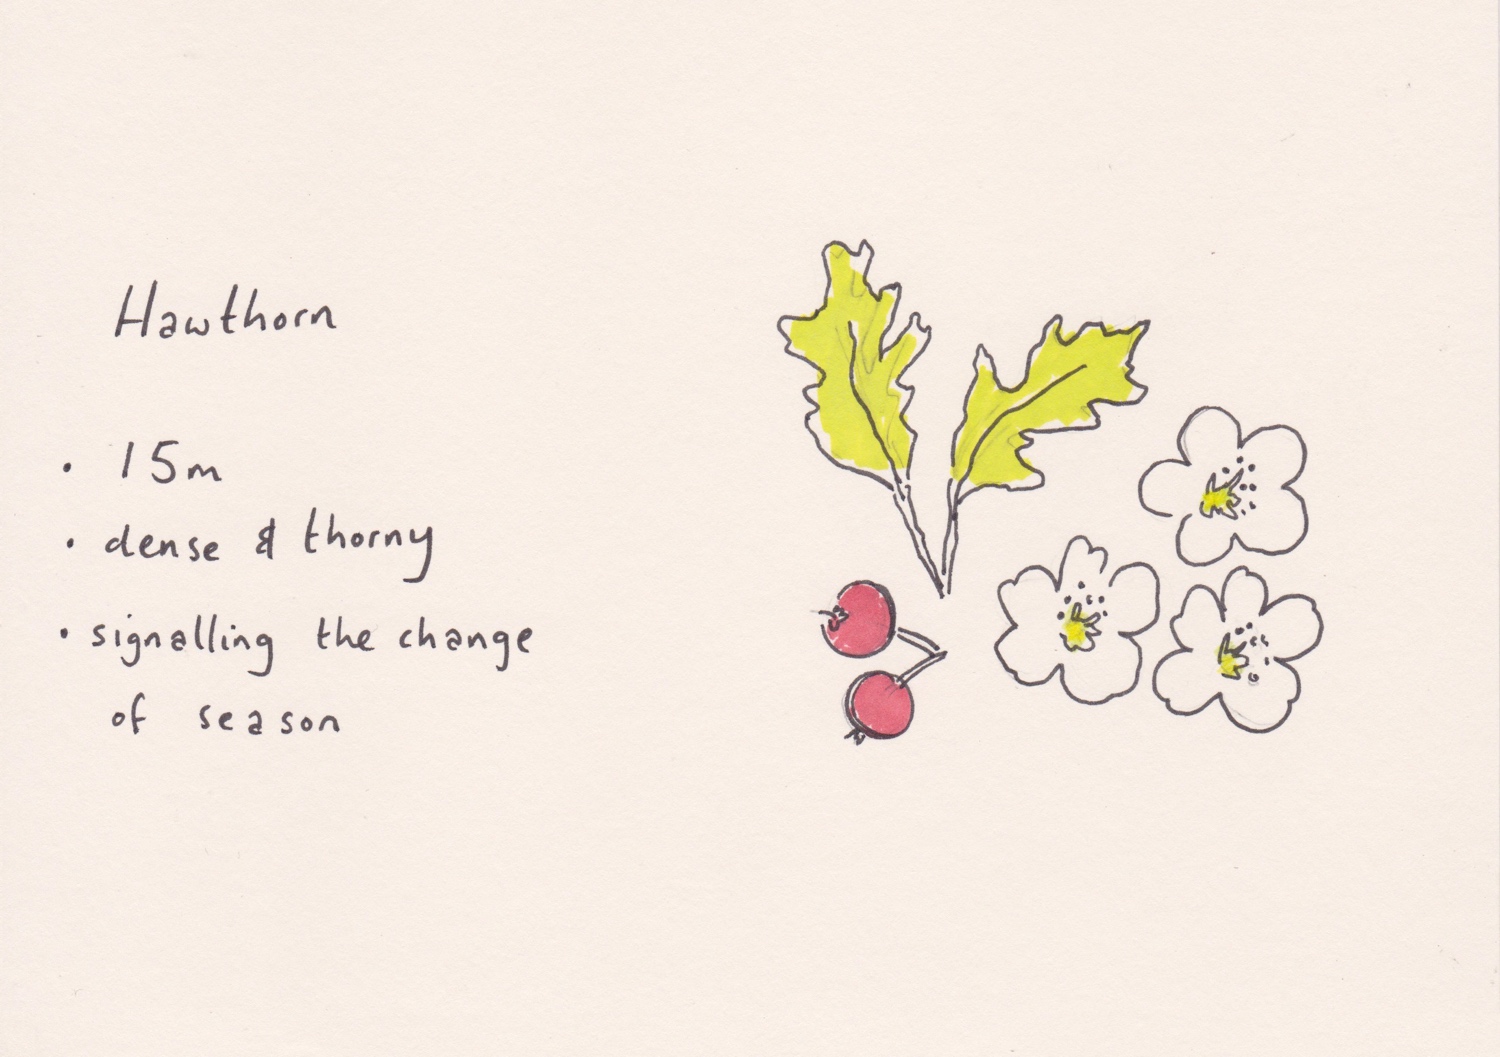 Hawthorn
• 15m
• dense & thorny
• signalling the change
of season